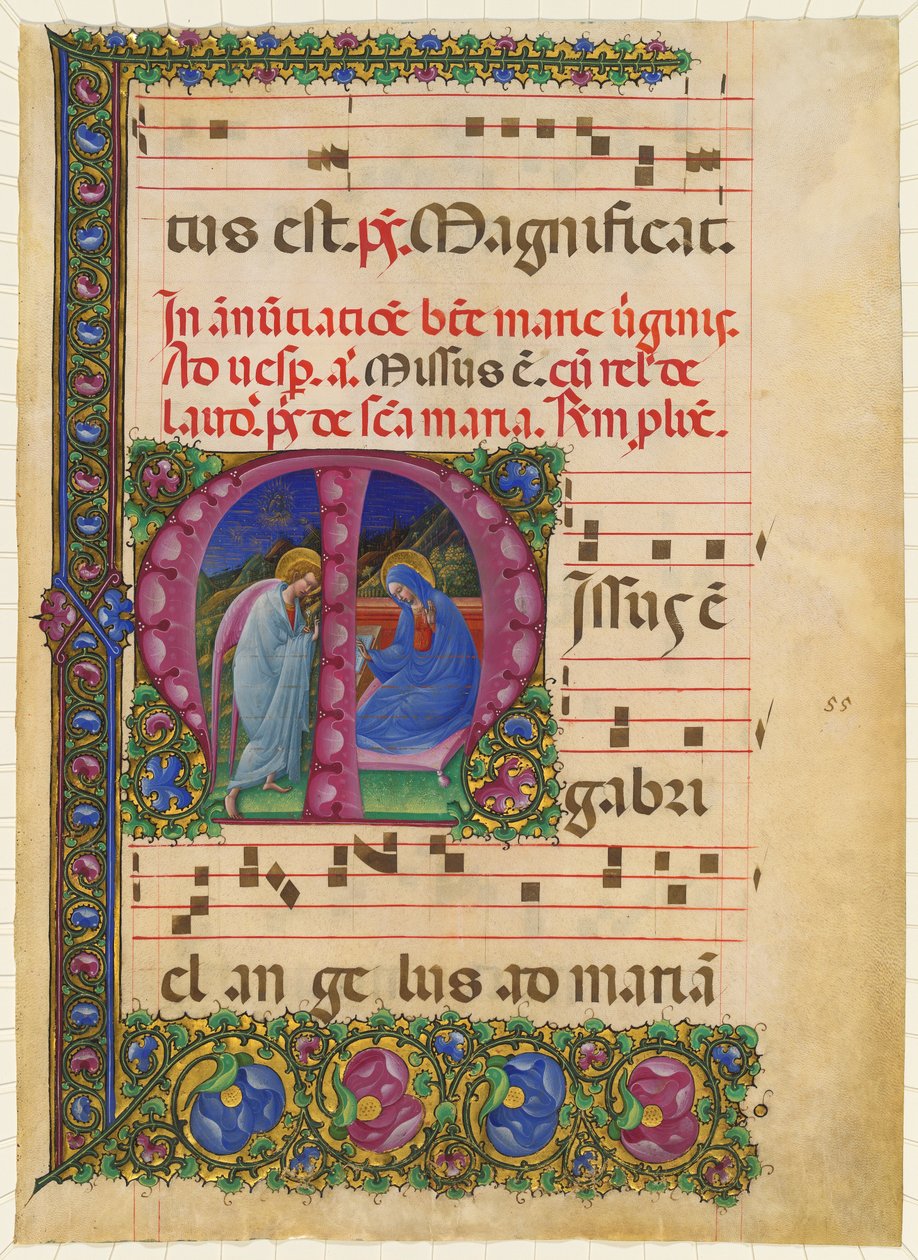 tus est. ps̄. Magnificat.
In ānūtiatiōe btē marie ūginis.
Ad uesp. a. Missus ē. cū rel' de
laud'. ps̄ de scā maria. hym
MIssus ē
55
gabri
el an ge lus ad mariā